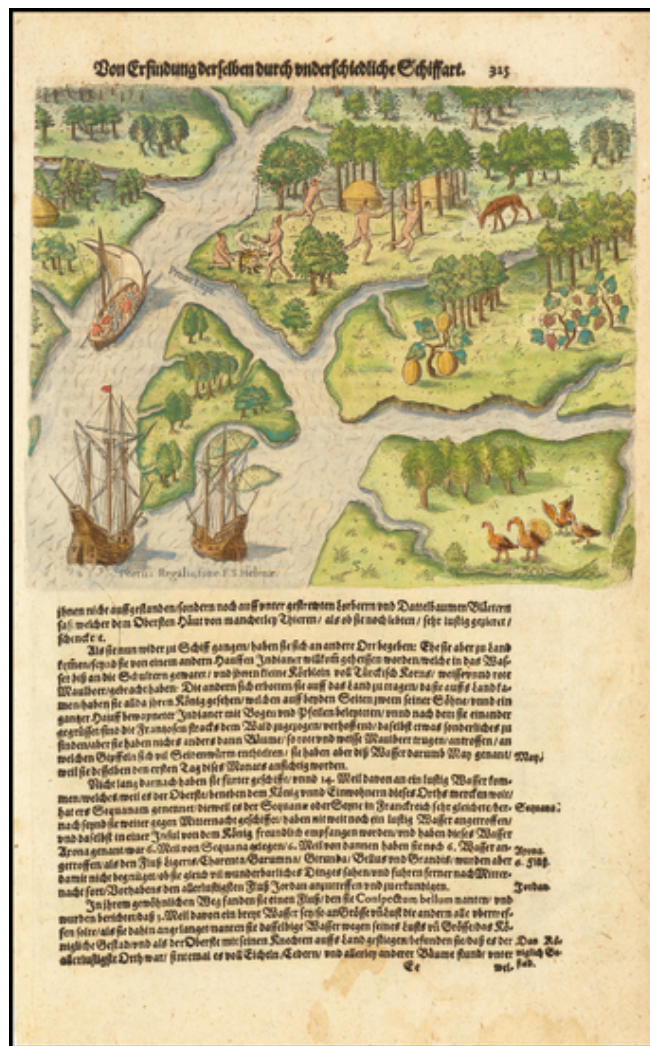 Von Erfindung derselben durch vnderschiedliche Schiffart. 315
Prom: Lupi
Portus Regalis, siue F. S. Helenæ
jhnen nicht auffgestanden/sondern noch auff vnter gestreuten Lorbeern vnd Dattelbaumen Blätern
saß/welcher dem Obersten Häut von mancherley Thieren/ als ob sie noch lebten/ sehr lustig gezieret/
schenckte.
Als sie nun wider zu Schiff gangen/haben sie sich an andere Ort begeben: Ehe sie aber zu Land
kommen/seynd sie von einem andern Hauffen Indianer willkom geheissen worden/welche in das Was-
ser biß an die Schultern gewatet/ vnd jhnen kleine Körblein voll Türckisch Korns/ weisse vnnd rote
Maulbeer/gebracht haben: Die andern sich erboten sie auff das Land zu tragen/da sie auffs Land ka-
men/haben sie allda jhren König gesehen/welchen auff beyden Seiten zween seiner Söhne/vnnd ein
gantzer Hauff bewapneter Indianer mit Bogen vnd Pfeilen beleyteten/vnnd nach dem sie einander
gegrüsset sind die Frantzosen stracks dem Wald zugezogen/verhoffend/daselbst etwas sonderliches zu
finden/aber sie haben nichts anders dann Bäume/so rote vnd weisse Maulbeer trugen/antroffen/an
welchen Gipffeln sich vil Seidenwürm enthielten/ sie haben aber diß Wasser darumb May genant/
May.
weil sie desselben den ersten Tag dieses Monats ansichtig worden.
Nicht lang darnach haben sie fürter geschifft/ vnnd 14. Meil davon an ein lustig Wasser kom-
men/welches/weil es der Oberste/beneben dem König vnnd Einwohnern dieses Orths mercken wolt/
hat ers Sequanam genennet/dieweil es der Sequanæ oder Seyne in Franckreich sehr gleichete/her-
Sequana.
nach seynd sie weiter gegen Mitternacht geschifft/ haben nit weit noch ein lustig Wasser angetroffen/
vnd daselbst in einer Insul von dem König freundlich empfangen worden/vnd haben dieses Wasser
Axona genant/war 6. Meil von Sequana gelegen/ 6. Meil von dannen haben sie noch 6. Wasser an-
Axona.
getroffen/als den Fluß Ligeris/Charenta/Garumna/ Girunda/ Bellus vnd Grandis/ wurden aber
6. Flüß.
damit nicht begnüget/ob sie gleich vil wunderbarliches Dinges sahen/vnd fuhren ferner nach Mitter-
nacht fort/Vorhabens den allerlustigsten Fluß Jordan anzutreffen vnd zu erkundigen.
Jordan.
In jhrem gewöhnlichen Weg fanden sie einen Fluß/den sie Conspectum bellum nanten/ vnd
wurden berichtet/daß 3. Meil davon ein breyt Wasser sey/so an Grösse vñ Lust die andern alle vbertref-
fen solte/als sie dahin angelanget nanten sie dasselbige Wasser wegen seines Lusts vñ Grösse/das Kö-
nigliche Gestad/vnd als der Oberste mit seinen Knechten auffs Land gestiegen/befunden sie/daß es der
Das Kö-
niglich Ge-
stad.
allerlustigste Orth war/ sintemal es voll Eicheln/Cedern/ vnd allerley anderer Bäume stunde/ vnter
Ee wel-